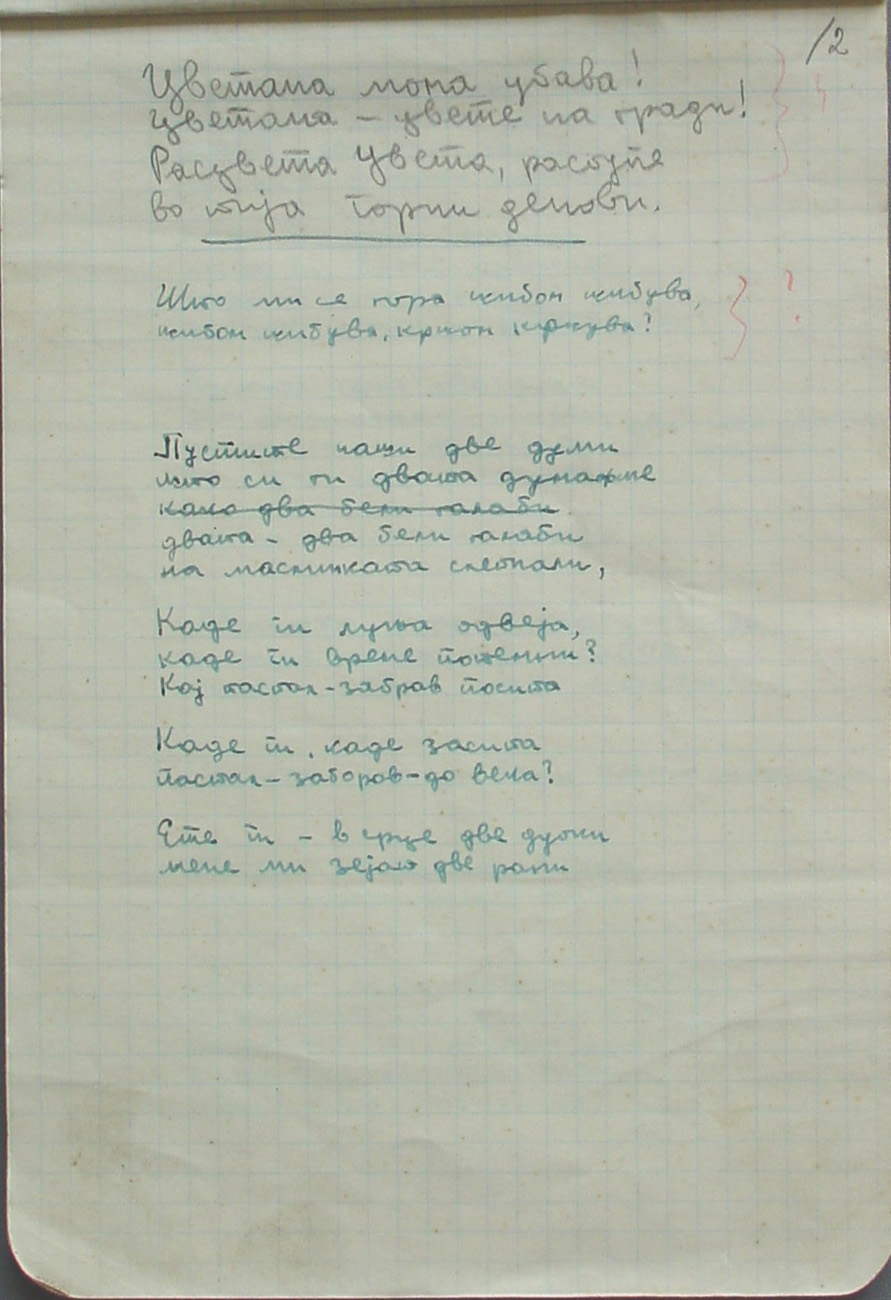 /2
Цветана мома убава!
Цветана – цвете на гради!
Расцвета Цвета,
во тија горни денови.
Што ми се гора нибон нибува,
нибон нибува, кршон кршува?
Пустите наши две думи
што си ги двата думавме
како два бели галаби
двата – два бели галаби
на маслинката слетнали,
Каде ги луња одвеја,
каде ги време
Кој гостол – заборав посита
Каде ги, каде засита
– заборав – до века?
Ете ги – в срце две дупки
мене ми зејат две рани